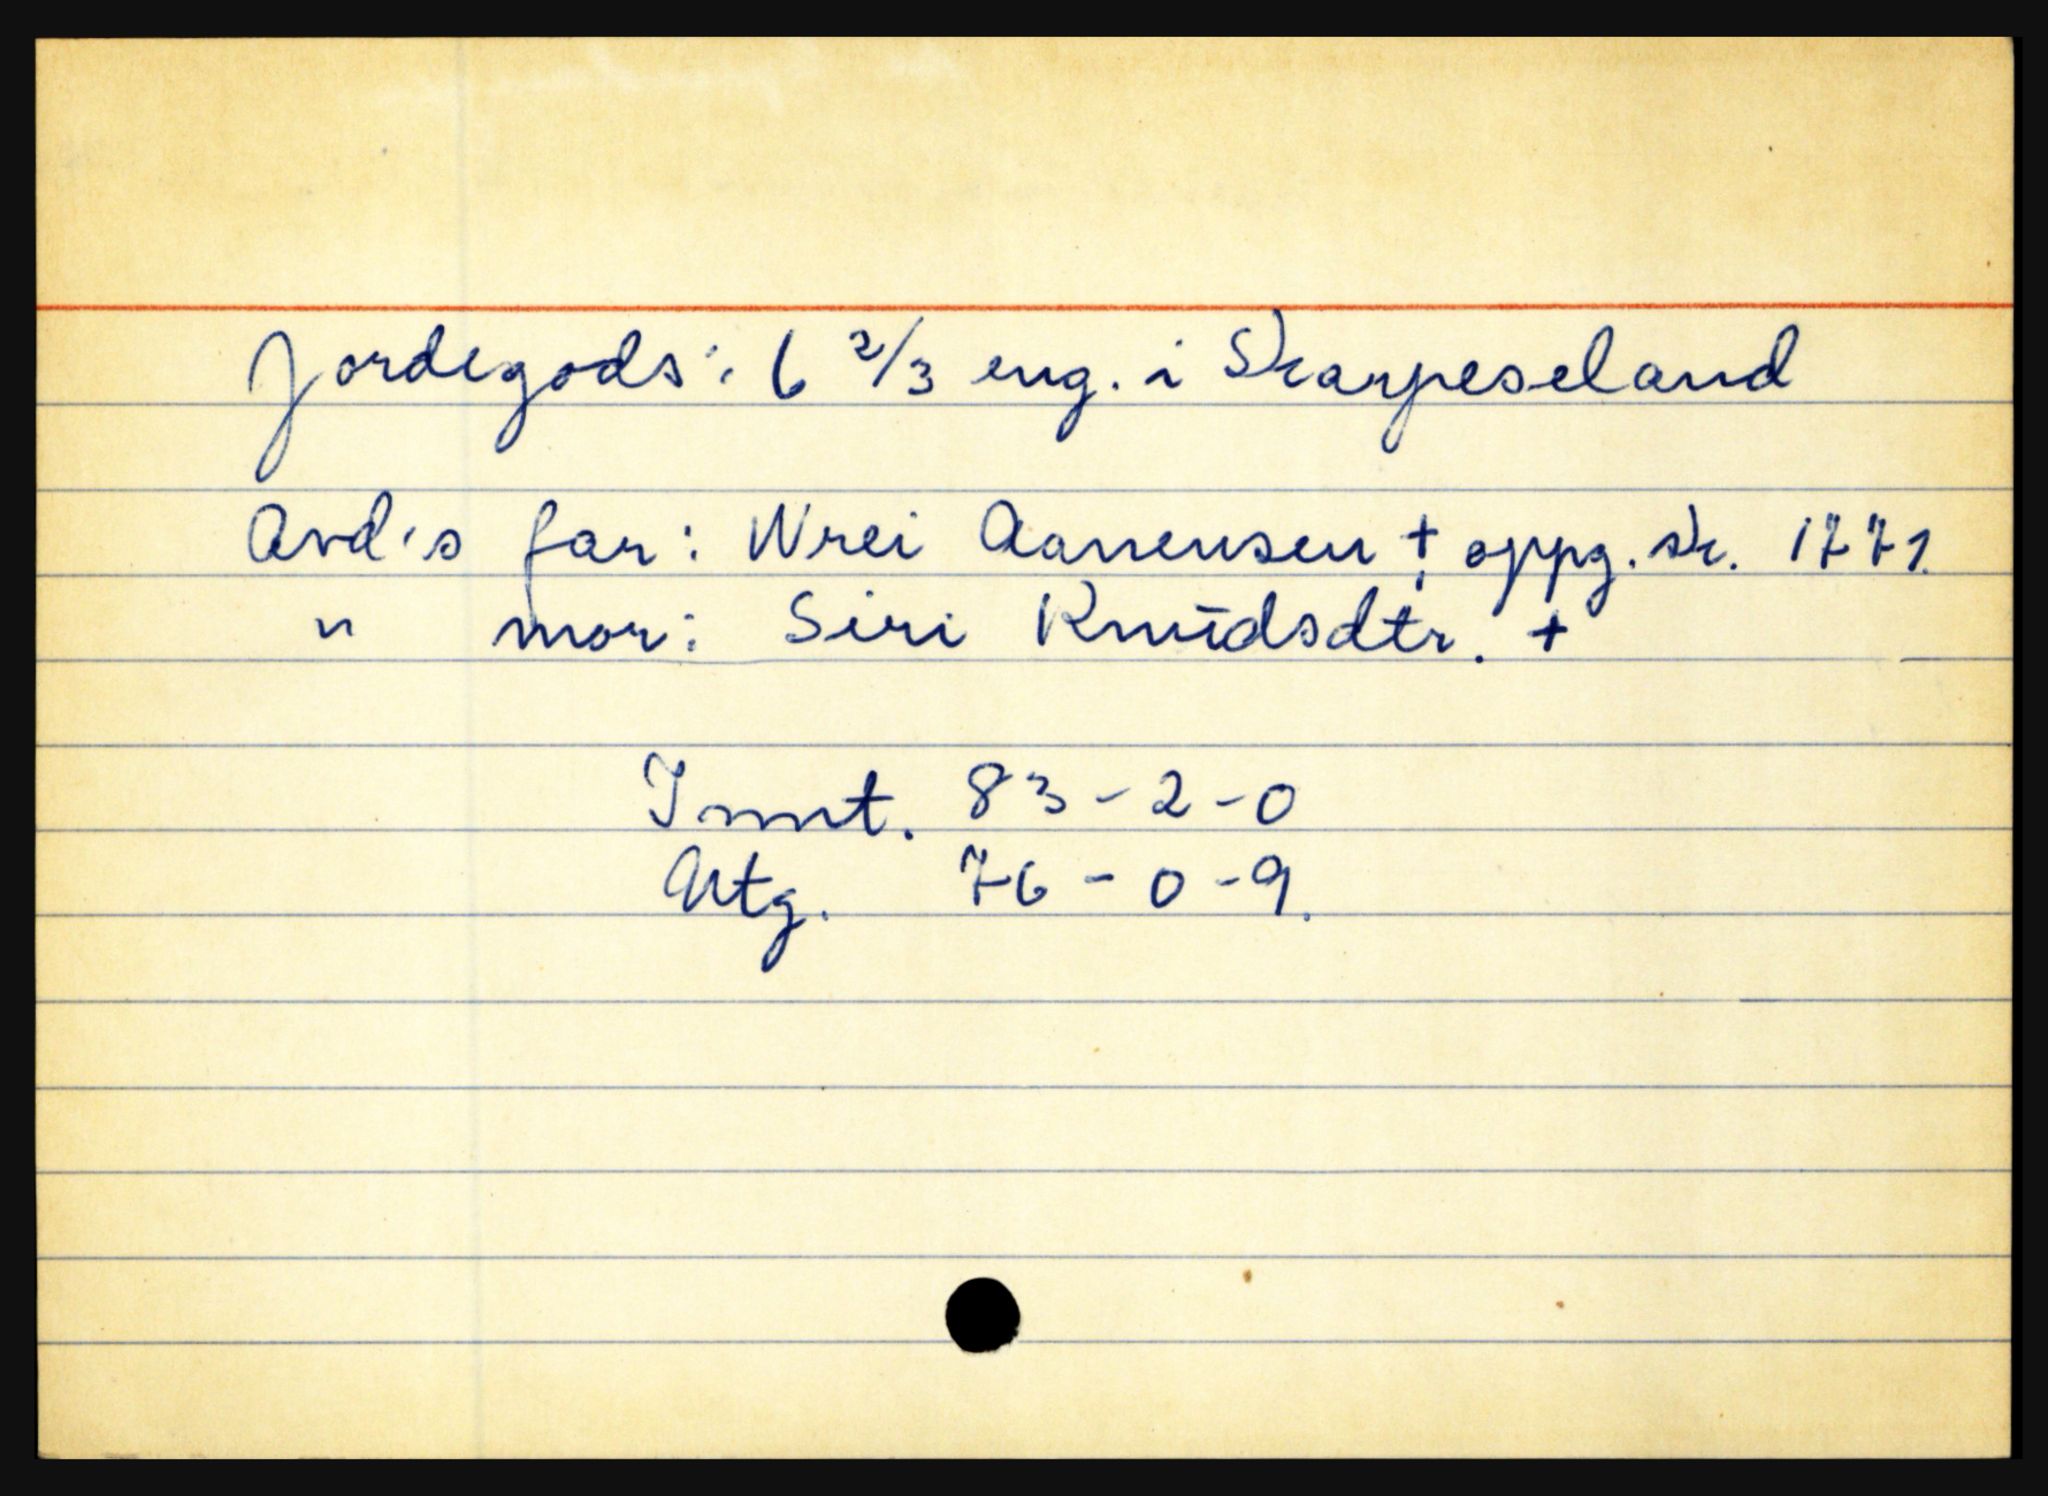 Jordegods: 6 2/3 eng. i Skarpeseland
Avd's far: Wrei Aanensen + oppg. sk. 1771.
" mor: Siri Knudsdtr. +
Innt. 83-2-0
Utg. 76-0-9.